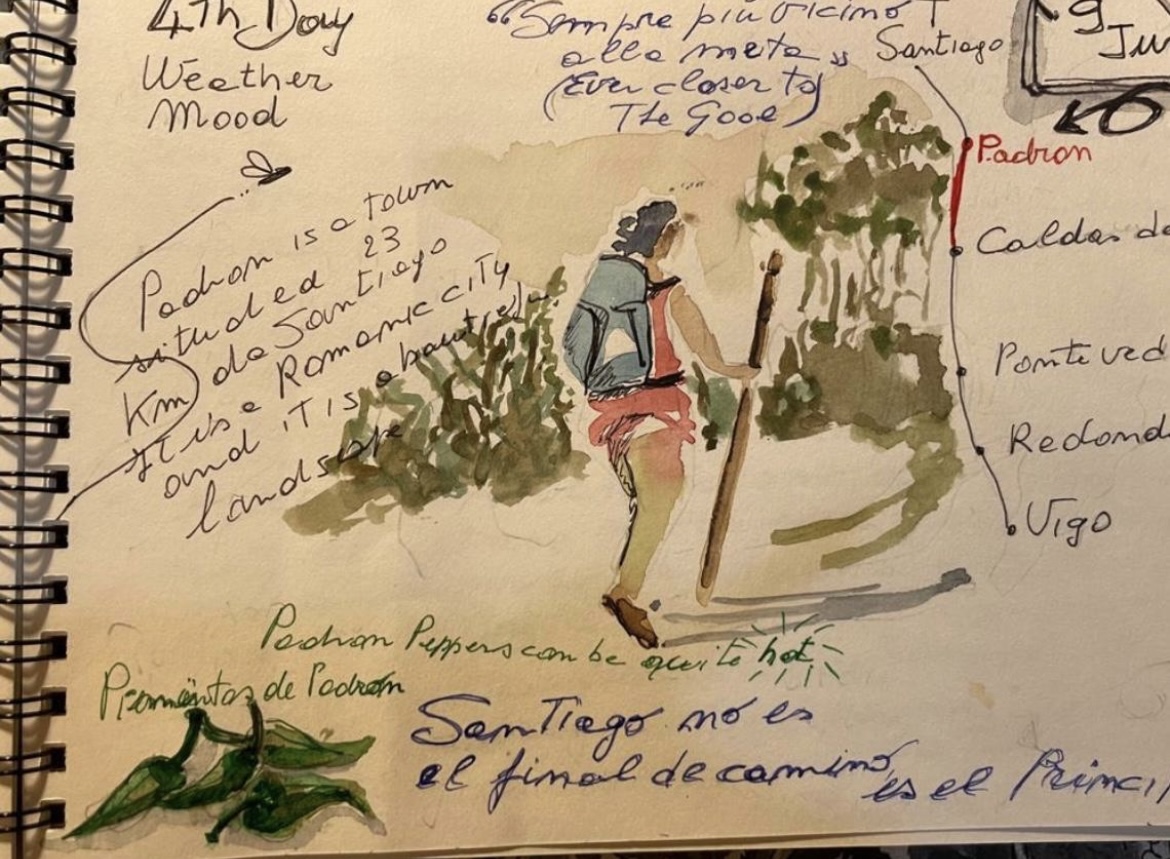 4Th Day
Weather
Mood
“Sempre più vicino
alla meta”
(Ever closer to
The Goal)
9
Ju
Santiago
Padron
Caldas de
Ponteved
Redond
Vigo
Padron is a town
situded 23
Km da Santiago
It is a Romanic city
and iT is a
landscape
Padron Peppers can be quite hot
Pimientos de Padrón
Santiago no es
el final de camino,
es el Princi